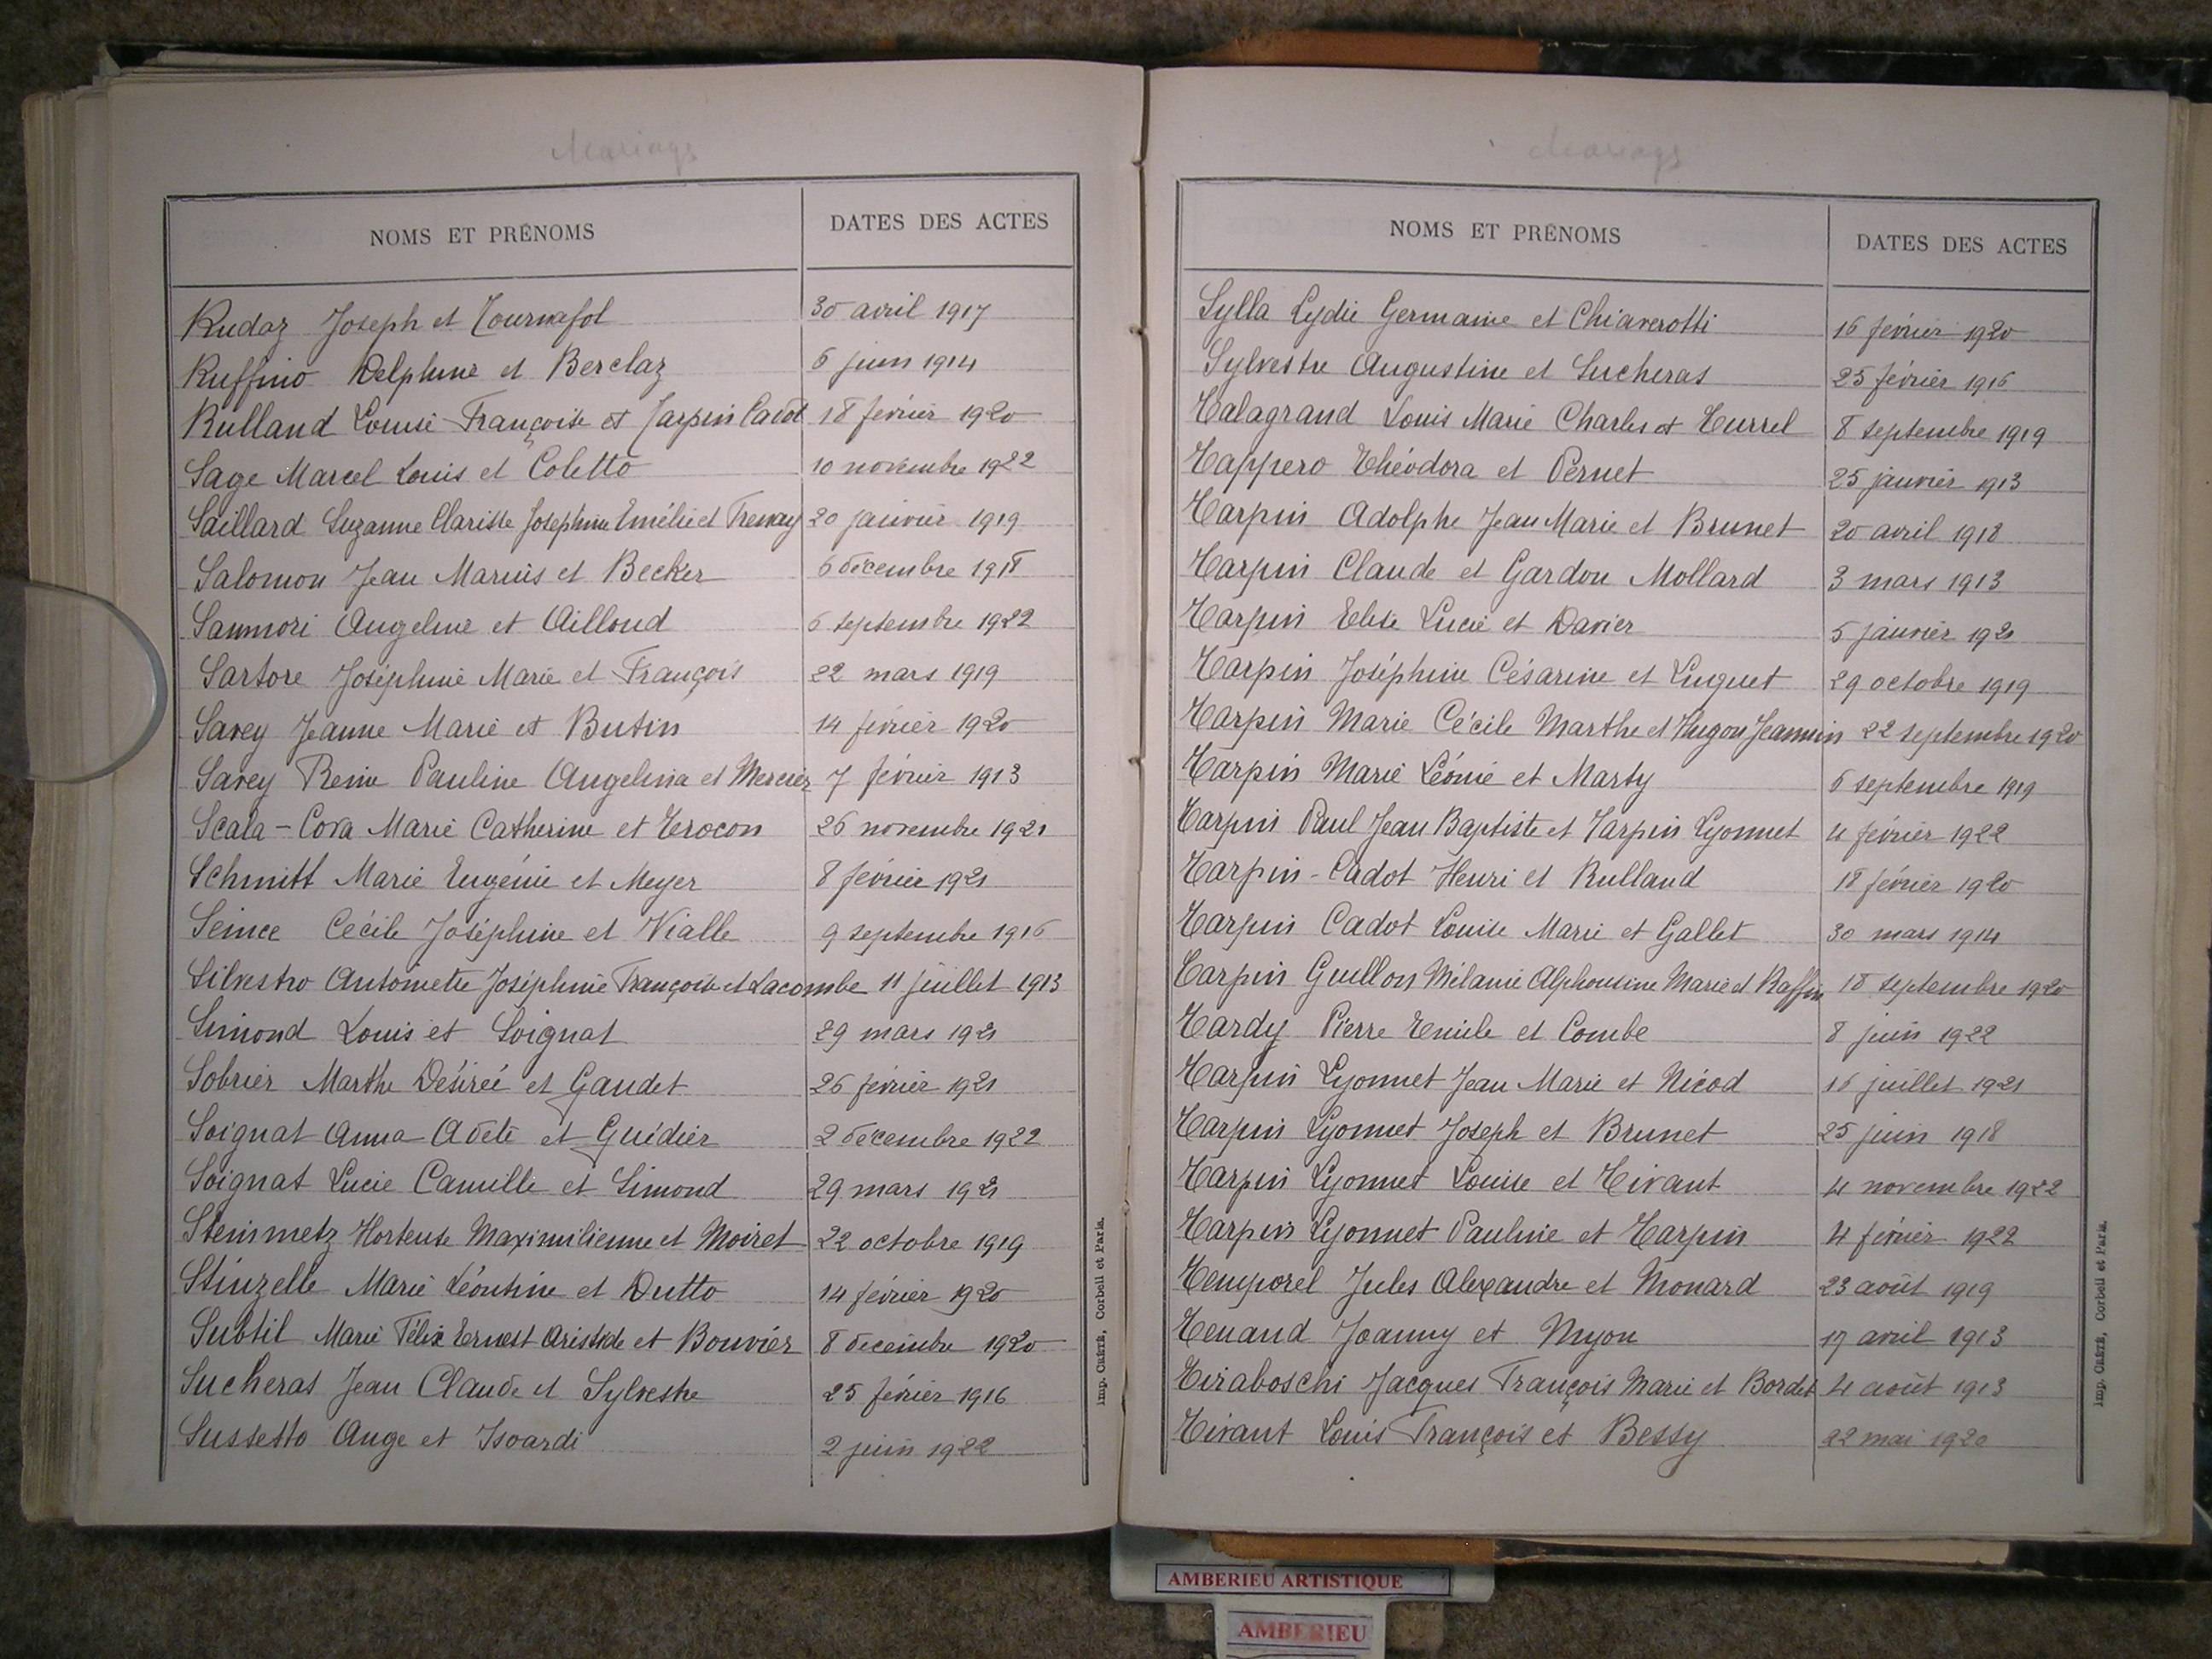 Mariages
NOMS ET PRÉNOMS DATES DES ACTES
Rudaz Joseph et Tournafol 30 avril 1917
Ruffino Delphine et Berclaz 6 juin 1914
Rulland Louise Françoise et Tarpin Cadot 18 février 1920
Sage Marcel Louis et Coletto 10 novembre 1922
Saillard Suzanne Clarisse Joséphine Emélie et Trenay 20 janvier 1919
Salomon Jean Marius et Becker 6 décembre 1918
Sanmori Angeline et Ailloud 6 septembre 1922
Sartore Joséphine Marie et François 22 mars 1919
Savey Jeanne Marie et Butin 14 février 1920
Savey Reine Pauline Angelina et Mercier 7 février 1913
Scala-Cora Marie Catherine et Trocon 26 novembre 1921
Schmitt Marie Eugénie et Meyer 8 février 1921
Seince Cécile Joséphine et Vialle 9 septembre 1916
Silvestro Antoinette Joséphine Françoise et Lacombe 11 juillet 1913
Simond Louis et Soignat 29 mars 1921
Sobrier Marthe Désirée et Gaudet 26 février 1921
Soignat Anna Adèle et Guédier 2 décembre 1922
Soignat Lucie Camille et Simond 29 mars 1921
Steinmetz Hortense Maximilienne et Moiret 22 octobre 1919
Stinzelle Marie Léontine et Dutto 14 février 1920
Subtil Marie Félix Ernest Aristide et Bouvier 8 décembre 1920
Sucheras Jean Claude et Sylvestre 25 février 1916
Sussetto Ange et Isoardi 2 juin 1922
Imp. CRÉTÉ, Corbeil et Paris.
Mariages
NOMS ET PRÉNOMS DATES DES ACTES
Sylla Lydie Germaine et Chiaverotti 16 février 1920
Sylvestre Augustine et Sucheras 25 février 1916
Talagrand Louis Marie Charles et Turrel 8 septembre 1919
Tappero Théodora et Pernet 25 janvier 1913
Tarpin Adolphe Jean Marie et Brunet 20 avril 1918
Tarpin Claude et Gardon Mollard 3 mars 1913
Tarpin Elise Lucie et Davier 5 janvier 1921
Tarpin Joséphine Césarine et Luguet 29 octobre 1919
Tarpin Marie Cécile Marthe et Hugon Jeannin 22 septembre 1920
Tarpin Marie Léonie et Marty 6 septembre 1919
Tarpin Paul Jean Baptiste et Tarpin Lyonnet 4 février 1922
Tarpin-Cadot Henri et Rulland 18 février 1920
Tarpin Cadot Louise Marie et Gallet 30 mars 1914
Tarpin Guillon Mélanie Alphonsine Marie et Raffin 18 septembre 1920
Tardy Pierre Emile et Combe 8 juin 1922
Tarpin Lyonnet Jean Marie et Nicod 16 juillet 1921
Tarpin Lyonnet Joseph et Brunet 25 juin 1918
Tarpin Lyonnet Louise et Tivant 4 novembre 1922
Tarpin Lyonnet Pauline et Tarpin 4 février 1922
Temporel Jules Alexandre et Monard 23 août 1919
Tenand Joanny et Myon 19 avril 1913
Tiraboschi Jacques François Marie et Bordet 4 août 1913
Tivant Louis François et Bessy 22 mai 1920
Imp. CRÉTÉ, Corbeil et Paris.
AMBERIEU ARTISTIQUE
AMBERIEU